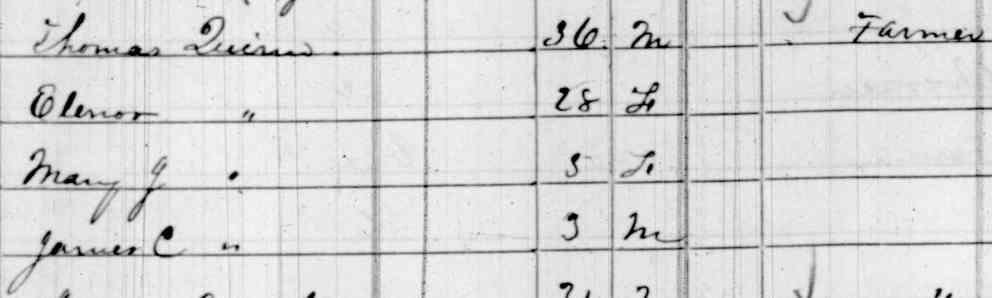 Thomas Quinn. 36. M Farmer
Elenor " 28 F
Mary J " 5 F
James C " 3 M